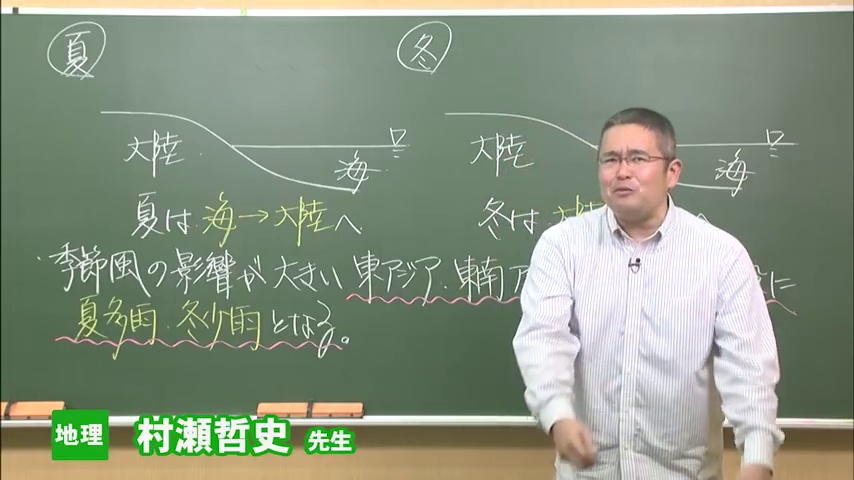 夏
冬
大陸
海
大陸
海
夏は 海→大陸へ
冬は 大陸
季節風の影響が大きい 東アジア・東南ア に
夏多雨・冬少雨となる。
地理 村瀬哲史 先生